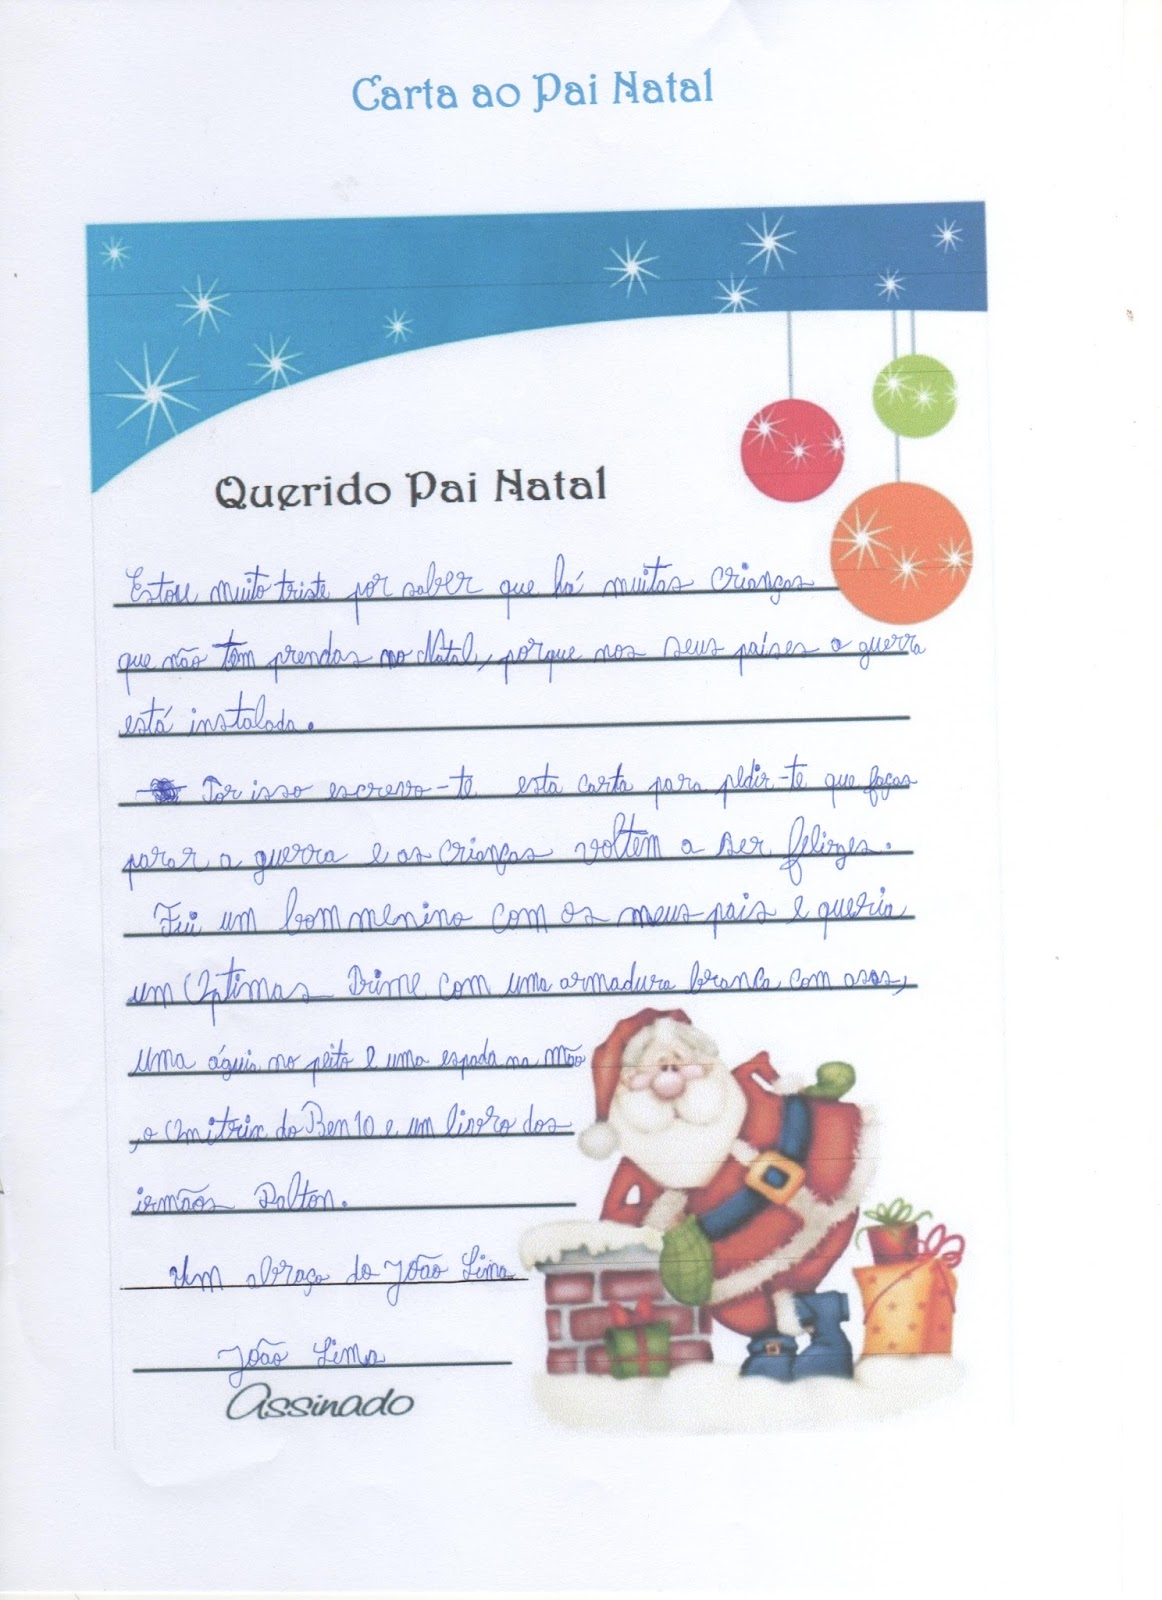 Carta ao Pai Natal
Querido Pai Natal
Estou muito triste por saber que há muitas crianças
que não têm prendas no Natal, porque nos seus países a guerra
está instalada.
Por isso escrevo-te esta carta para pedir-te que faças
parar a guerra e as crianças voltem a ser felizes.
Fui um bom menino com os meus pais e queria
um Optimas Prime com uma armadura branca com asas,
uma águia no peito e uma espada na mão
,o Omitrix do Ben 10 e um livro dos
irmãos Dalton.
Um abraço do João Lima
João Lima
Assinado